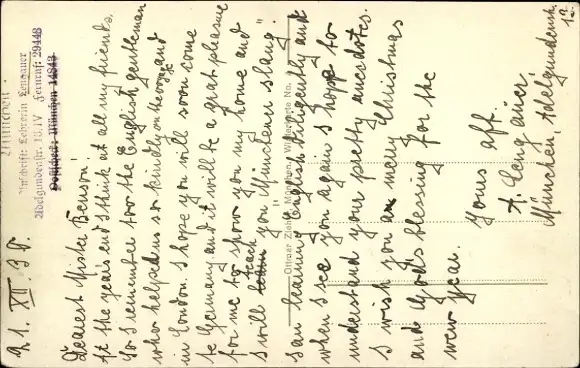 München.
Anschrift: Lehrerin Lengauer
Adelgundenstr. 10/IV Fernruf: 29448
Postscheck: München 14849
21. XII. 30.
Dearest Mister Benson!
At the year's end I think at all my friends.
So I remember too the English gentleman
who helped us so kindly on the voyage and
in London. I hope you will soon come
to Germany and it will be a great pleasure
for me to show you my home and
I will teach you "Münchener slang."
I am learning English diligently and
when I see you again I hope to
understand your pretty anecdotes.
I wish you a many Christmas
and God's blessing for the
new year.
Yours aff.
A. Lengauer,
München, Adelgundenstr.
Ottmar Zieher, München, Wilhelmstr.